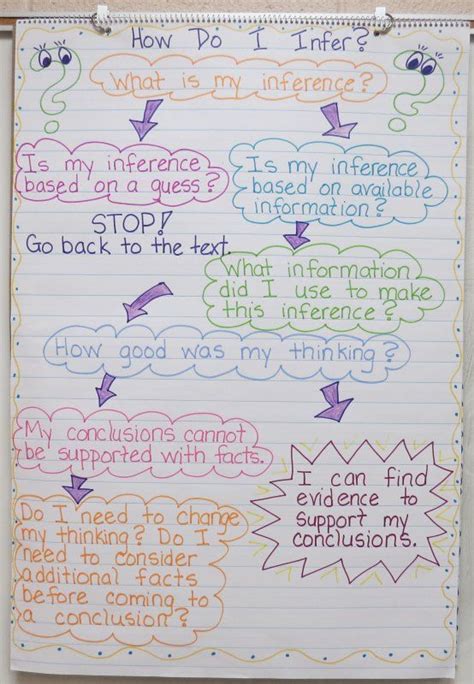 How Do I Infer?
What is my inference?
Is my inference
based on a guess?
Is my inference
based on available
information?
STOP!
Go back to the text.
What information
did I use to make
this inference?
How good was my thinking?
My conclusions cannot
be supported with facts.
I can find
evidence to
support my
conclusions.
Do I need to change
my thinking? Do I
need to consider
additional facts
before coming to
a conclusion?